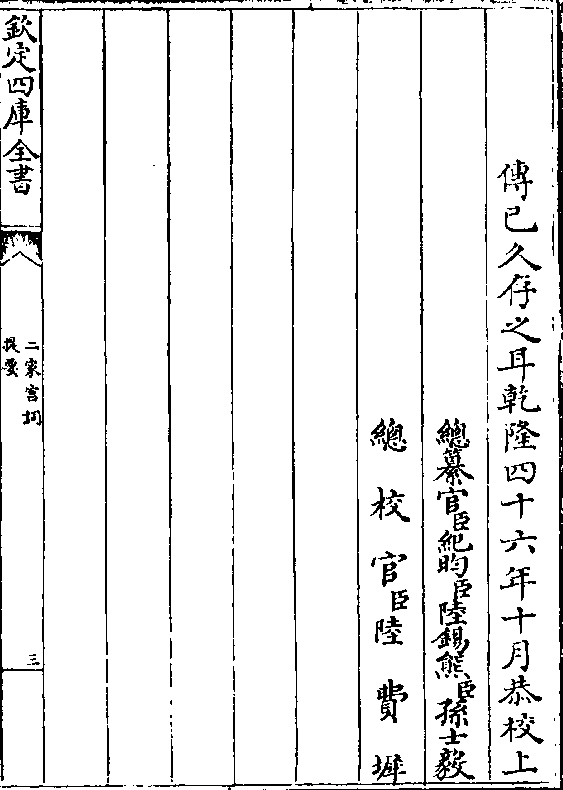 傳已久存之耳乾隆四十六年十月恭校上
總纂官臣紀昀臣陸錫熊臣孫士毅
總校官臣陸費墀
欽定四庫全書
二家宫詞
提要
三